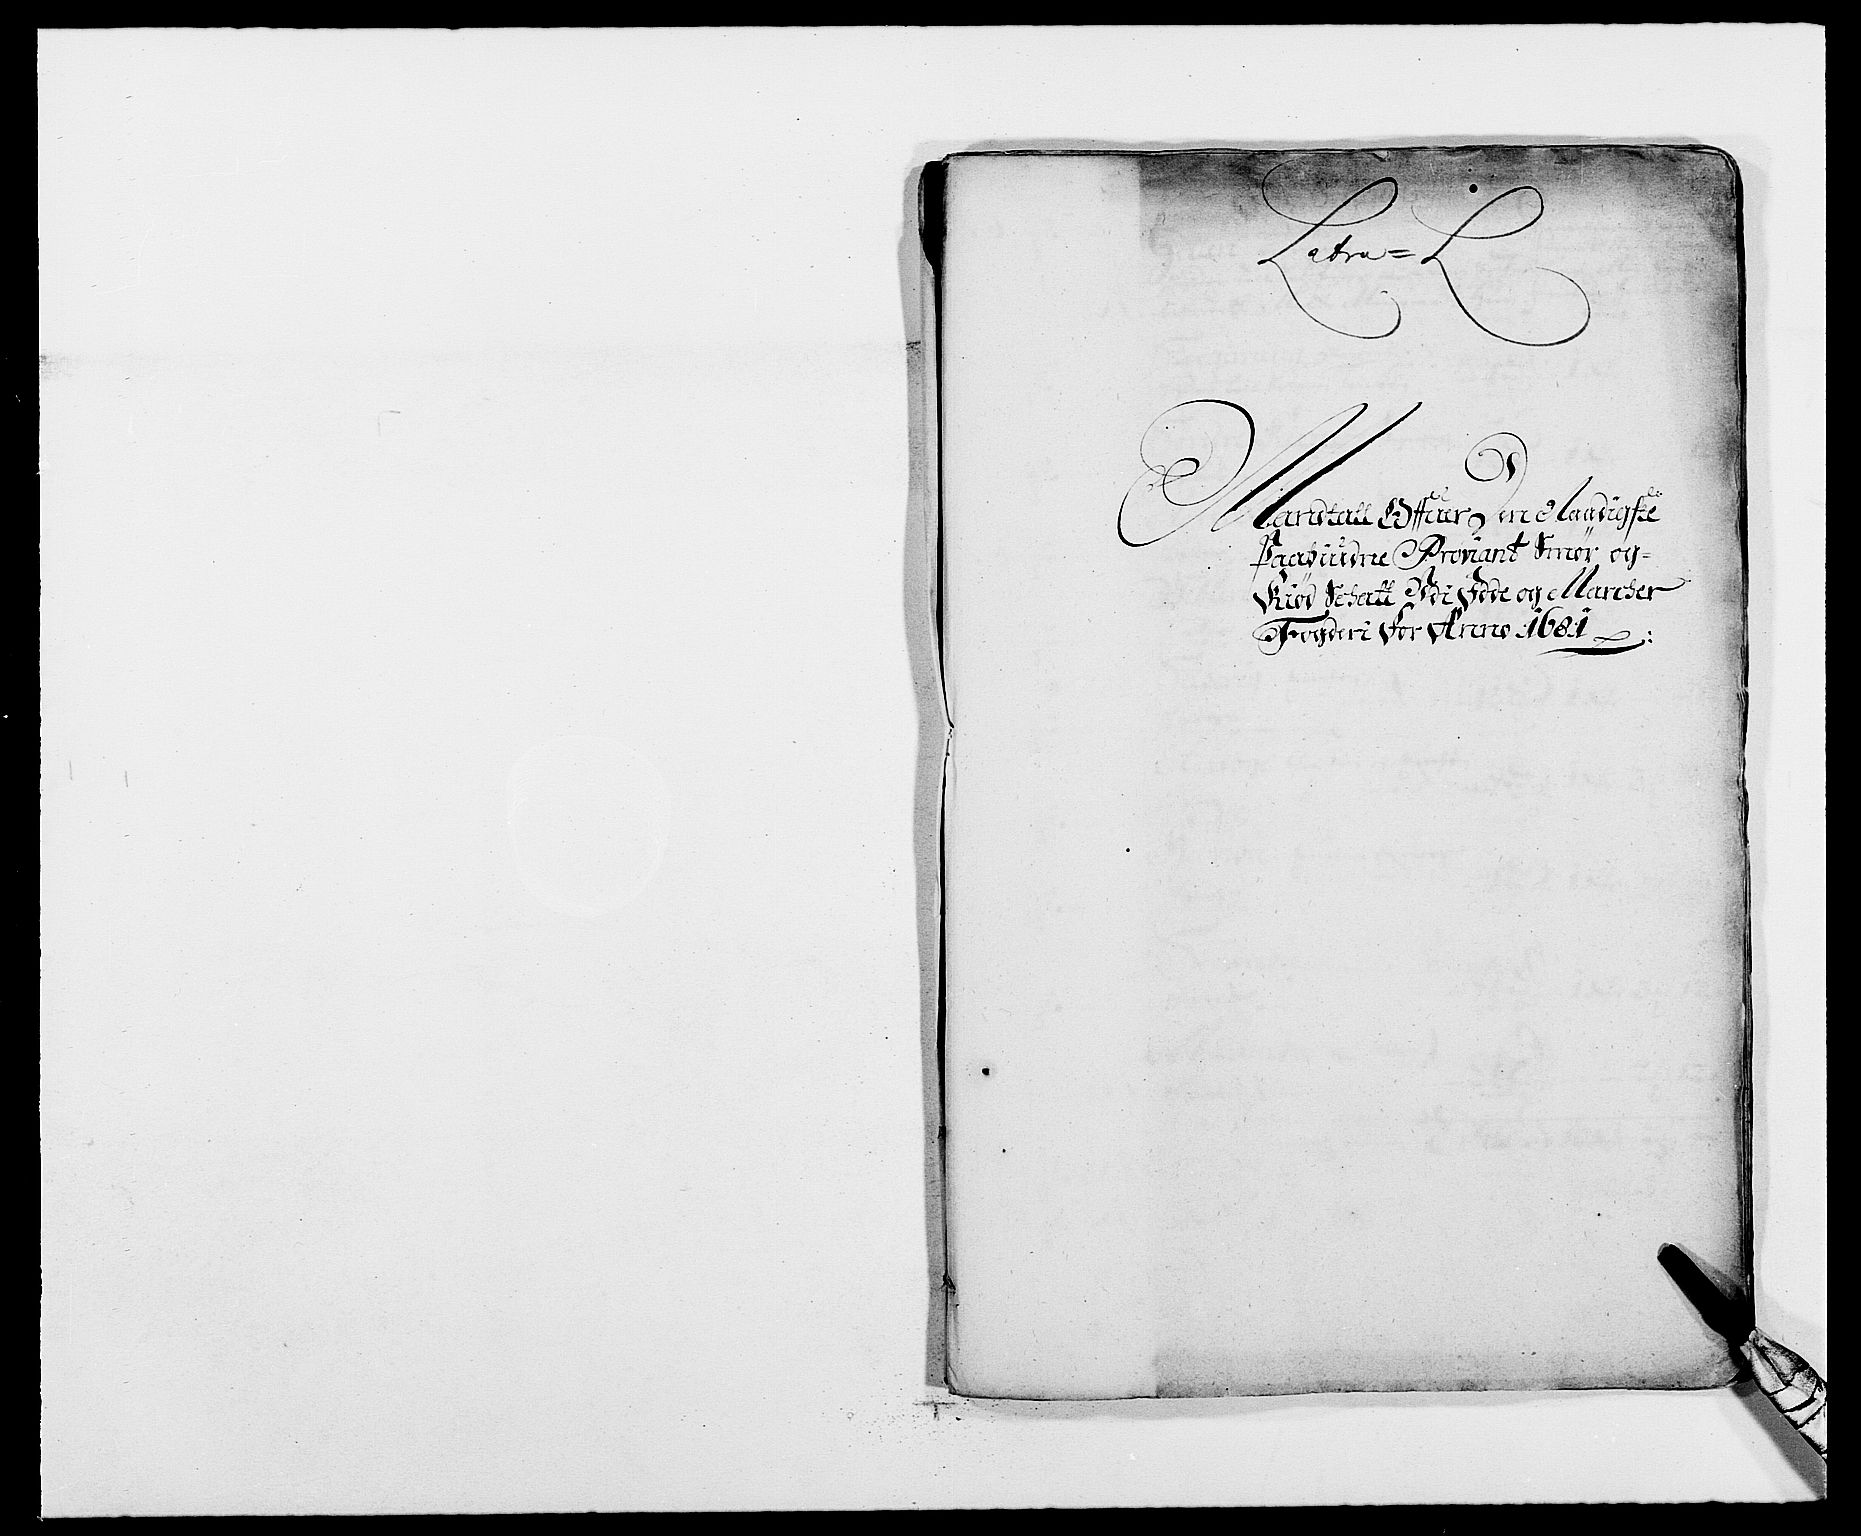 Latra = L
Mandtall Offuer Den Naadigste
Paabudne Proviant Smør og=
Kiød Schatt Udi Idde og Marcher
Fogderi for Anno 1681